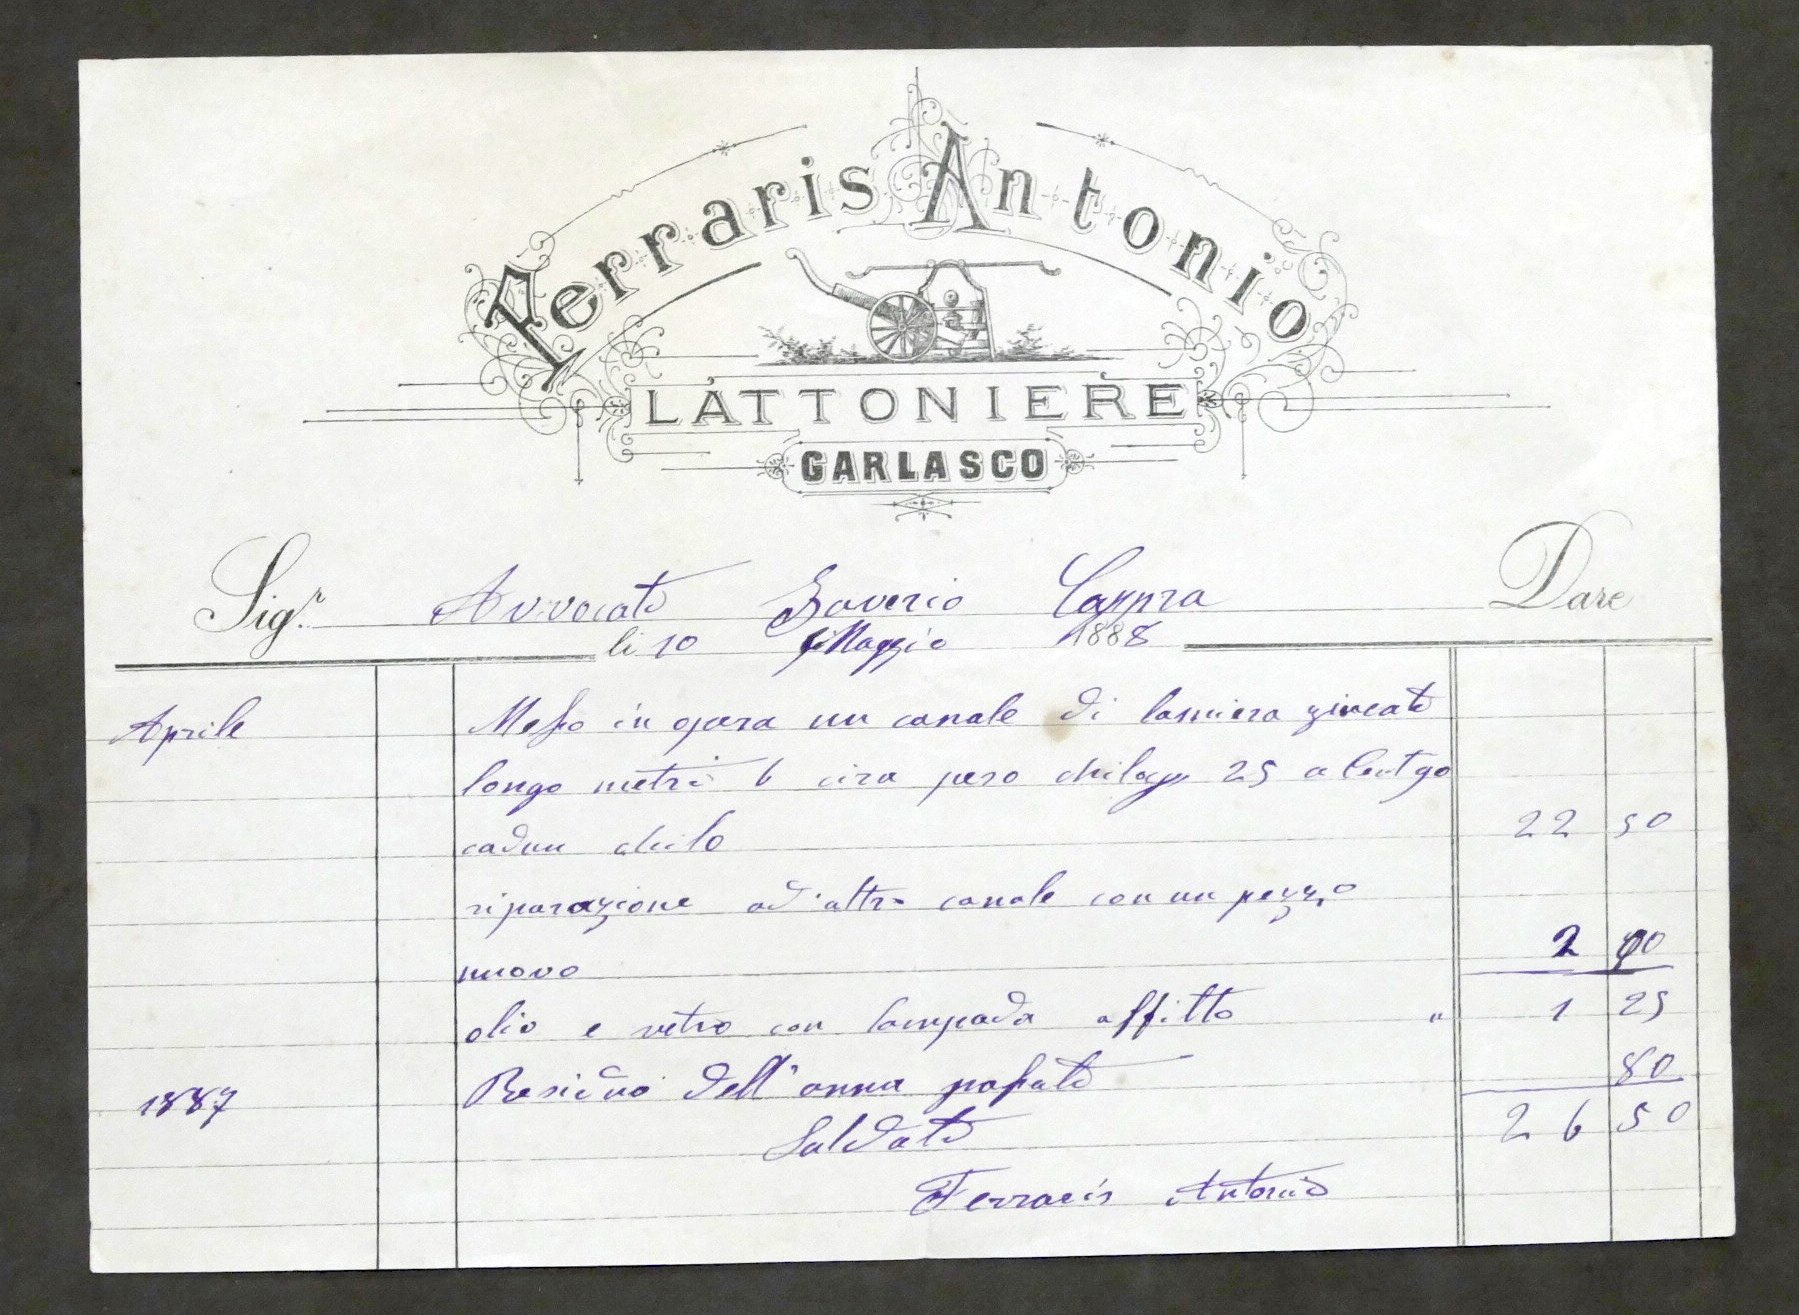 Ferraris Antonio
LATTONIERE
GARLASCO
Sigr. Avvocato Saverio Cappra Dare
li 10 Maggio 1888
Aprile Messo in opera un canale di lamiera zincato
longo metri 6 circa peso chilog 25 a Cent 90
cadun chilo 22 50
riparazione ad altro canale con un pezzo
nuovo 2 00
olio e vetro con lampada affitto " 1 25
1887 Residuo dell'anna passato 80
Saldato 26 50
Ferraris Antonio